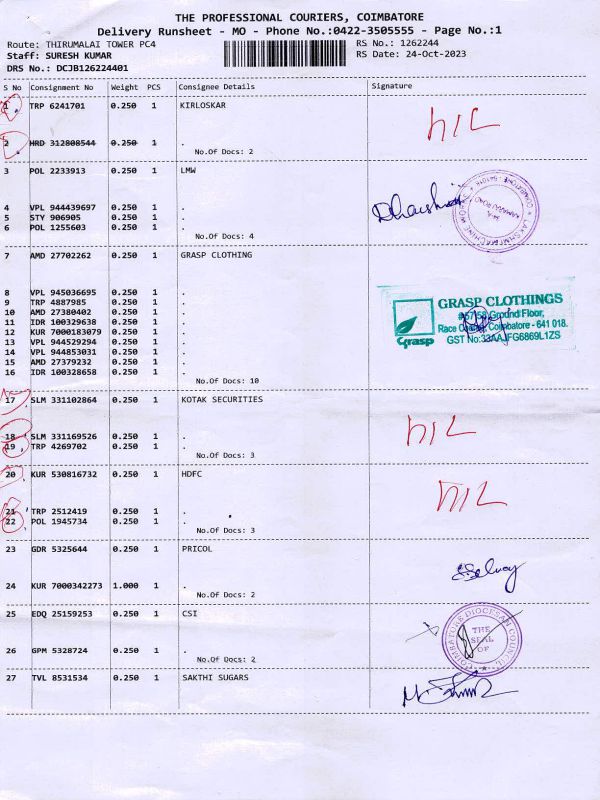 THE PROFESSIONAL COURIERS, COIMBATORE
Delivery Runsheet - MO - Phone No.:0422-3505555 - Page No.:1
Route: THIRUMALAI TOWER PC4 RS No.: 1262244
Staff: SURESH KUMAR RS Date: 24-Oct-2023
DRS No.: DCJB126224401
S No Consignment No Weight PCS Consignee Details Signature
1 TRP 6241701 0.250 1 KIRLOSKAR
N/L
2 HRD 312808544 0.250 1 .
No.Of Docs: 2
3 POL 2233913 0.250 1 LMW
4 VPL 944439697 0.250 1 .
5 STY 906905 0.250 1 .
6 POL 1255603 0.250 1 .
No.Of Docs: 4
7 AMD 27702262 0.250 1 GRASP CLOTHING
8 VPL 945036695 0.250 1 .
9 TRP 4887985 0.250 1 .
10 AMD 27380402 0.250 1 .
11 IDR 100329638 0.250 1 .
12 KUR 7000183079 0.250 1 .
13 VPL 944529294 0.250 1 .
14 VPL 944853031 0.250 1 .
15 AMD 27379232 0.250 1 .
16 IDR 100328658 0.250 1 .
No.Of Docs: 10
GRASP CLOTHINGS
Ground Floor,
Race Coimbatore - 641 018.
GST No:33AAJFG6869L1ZS
Grasp
17 SLM 331102864 0.250 1 KOTAK SECURITIES
N/L
18 SLM 331169526 0.250 1 .
19 TRP 4269702 0.250 1 .
No.Of Docs: 3
20 KUR 530816732 0.250 1 HDFC
N/L
21 TRP 2512419 0.250 1 .
22 POL 1945734 0.250 1 .
No.Of Docs: 3
23 GDR 5325644 0.250 1 PRICOL
24 KUR 7000342273 1.000 1 .
No.Of Docs: 2
25 EDQ 25159253 0.250 1 CSI
COIMBATORE DIOCESAN COUNCIL
THE
SEAL
OF
26 GPM 5328724 0.250 1 .
No.Of Docs: 2
27 TVL 8531534 0.250 1 SAKTHI SUGARS